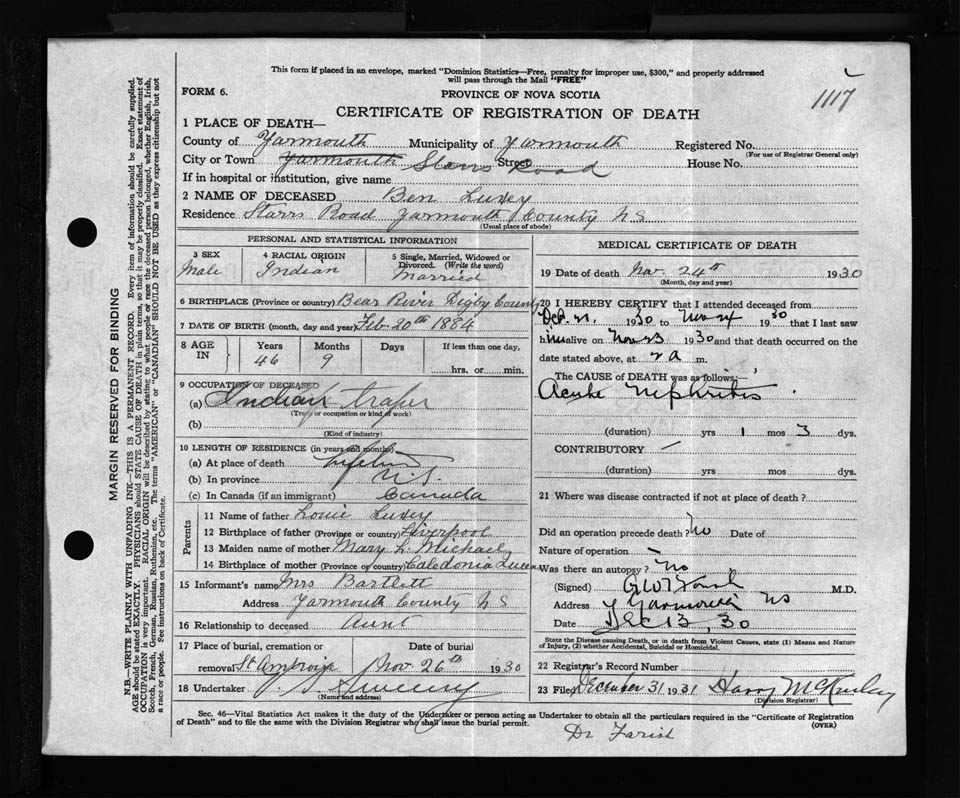 This form if placed in an envelope, marked "Dominion Statistics—Free, penalty for improper use, $300," and properly addressed
will pass through the Mail "FREE"
1117
FORM 6.
PROVINCE OF NOVA SCOTIA
CERTIFICATE OF REGISTRATION OF DEATH
1 PLACE OF DEATH—
County of Yarmouth Municipality of Yarmouth Registered No.
(For use of Registrar General only)
City or Town Yarmouth Starrs Street Road House No.
If in hospital or institution, give name
2 NAME OF DECEASED Ben Luxey
Residence Starrs Road Yarmouth County N S
(Usual place of abode)
PERSONAL AND STATISTICAL INFORMATION
3 SEX Male
4 RACIAL ORIGIN Indian
5 Single, Married, Widowed or
Divorced. (Write the word)
Married
6 BIRTHPLACE (Province or country) Bear River Digby County
7 DATE OF BIRTH (month, day and year) Feb 20th 1884
8 AGE IN Years Months Days If less than one day.
46 9
hrs. or min.
9 OCCUPATION OF DECEASED
(a) Indian traper
(Trade or occupation or kind of work)
(b)
(Kind of industry)
10 LENGTH OF RESIDENCE (in years and months)
(a) At place of death
(b) In province N.S.
(c) In Canada (if an immigrant) Canada
Parents
11 Name of father Louie Luxey
12 Birthplace of father (Province or country) Liverpool
13 Maiden name of mother Mary L. Michael
14 Birthplace of mother (Province or country) Caledonia Queens
15 Informant's name Mrs Bartlett
Address Yarmouth County N S
16 Relationship to deceased Aunt
17 Place of burial, cremation or Date of burial
removal St Ambroise Nov. 26th 1930
18 Undertaker Sweeny
(Name and address)
MEDICAL CERTIFICATE OF DEATH
19 Date of death Nov. 24th 1930
(Month, day and year)
20 I HEREBY CERTIFY that I attended deceased from
21. 1930 to Nov 24 1930 that I last saw
him alive on Nov 23 1930 and that death occurred on the
date stated above, at 2 a m.
The CAUSE of DEATH was as follows:—
Acute Nephritis
(duration) yrs 1 mos 3 dys.
CONTRIBUTORY —
(duration) yrs. mos. dys.
21 Where was disease contracted if not at place of death?
Did an operation precede death? No Date of
Nature of operation —
Was there an autopsy? No
(Signed) M.D.
Address Yarmouth NS
Date Dec 13, 30
State the Disease causing Death, or in death from Violent Causes, state (1) Means and Nature
of Injury, (2) whether Accidental, Suicidal or Homicidal.
22 Registrar's Record Number
23 Filed December 31 1931 Harry McKinlay
(Division Registrar)
Sec. 46—Vital Statistics Act makes it the duty of the Undertaker or person acting as Undertaker to obtain all the particulars required in the "Certificate of Registration
of Death" and to file the same with the Division Registrar who shall issue the burial permit.
(OVER)
Dr Farish
MARGIN RESERVED FOR BINDING
N.B.—WRITE PLAINLY WITH UNFADING INK—THIS IS A PERMANENT RECORD. Every item of information should be carefully supplied.
AGE should be stated EXACTLY. PHYSICIANS should STATE CAUSE OF DEATH in plain terms, so that it may be properly classified. Exact statement of
OCCUPATION is very important. RACIAL ORIGIN will be described by stating to what people or race the deceased person belonged, whether English, Irish,
Scotch, French, German, Russian, Ruthenian, etc. The terms "AMERICAN" or "CANADIAN" SHOULD NOT BE USED as they express citizenship but not
a race or people. See instructions on back of Certificate.